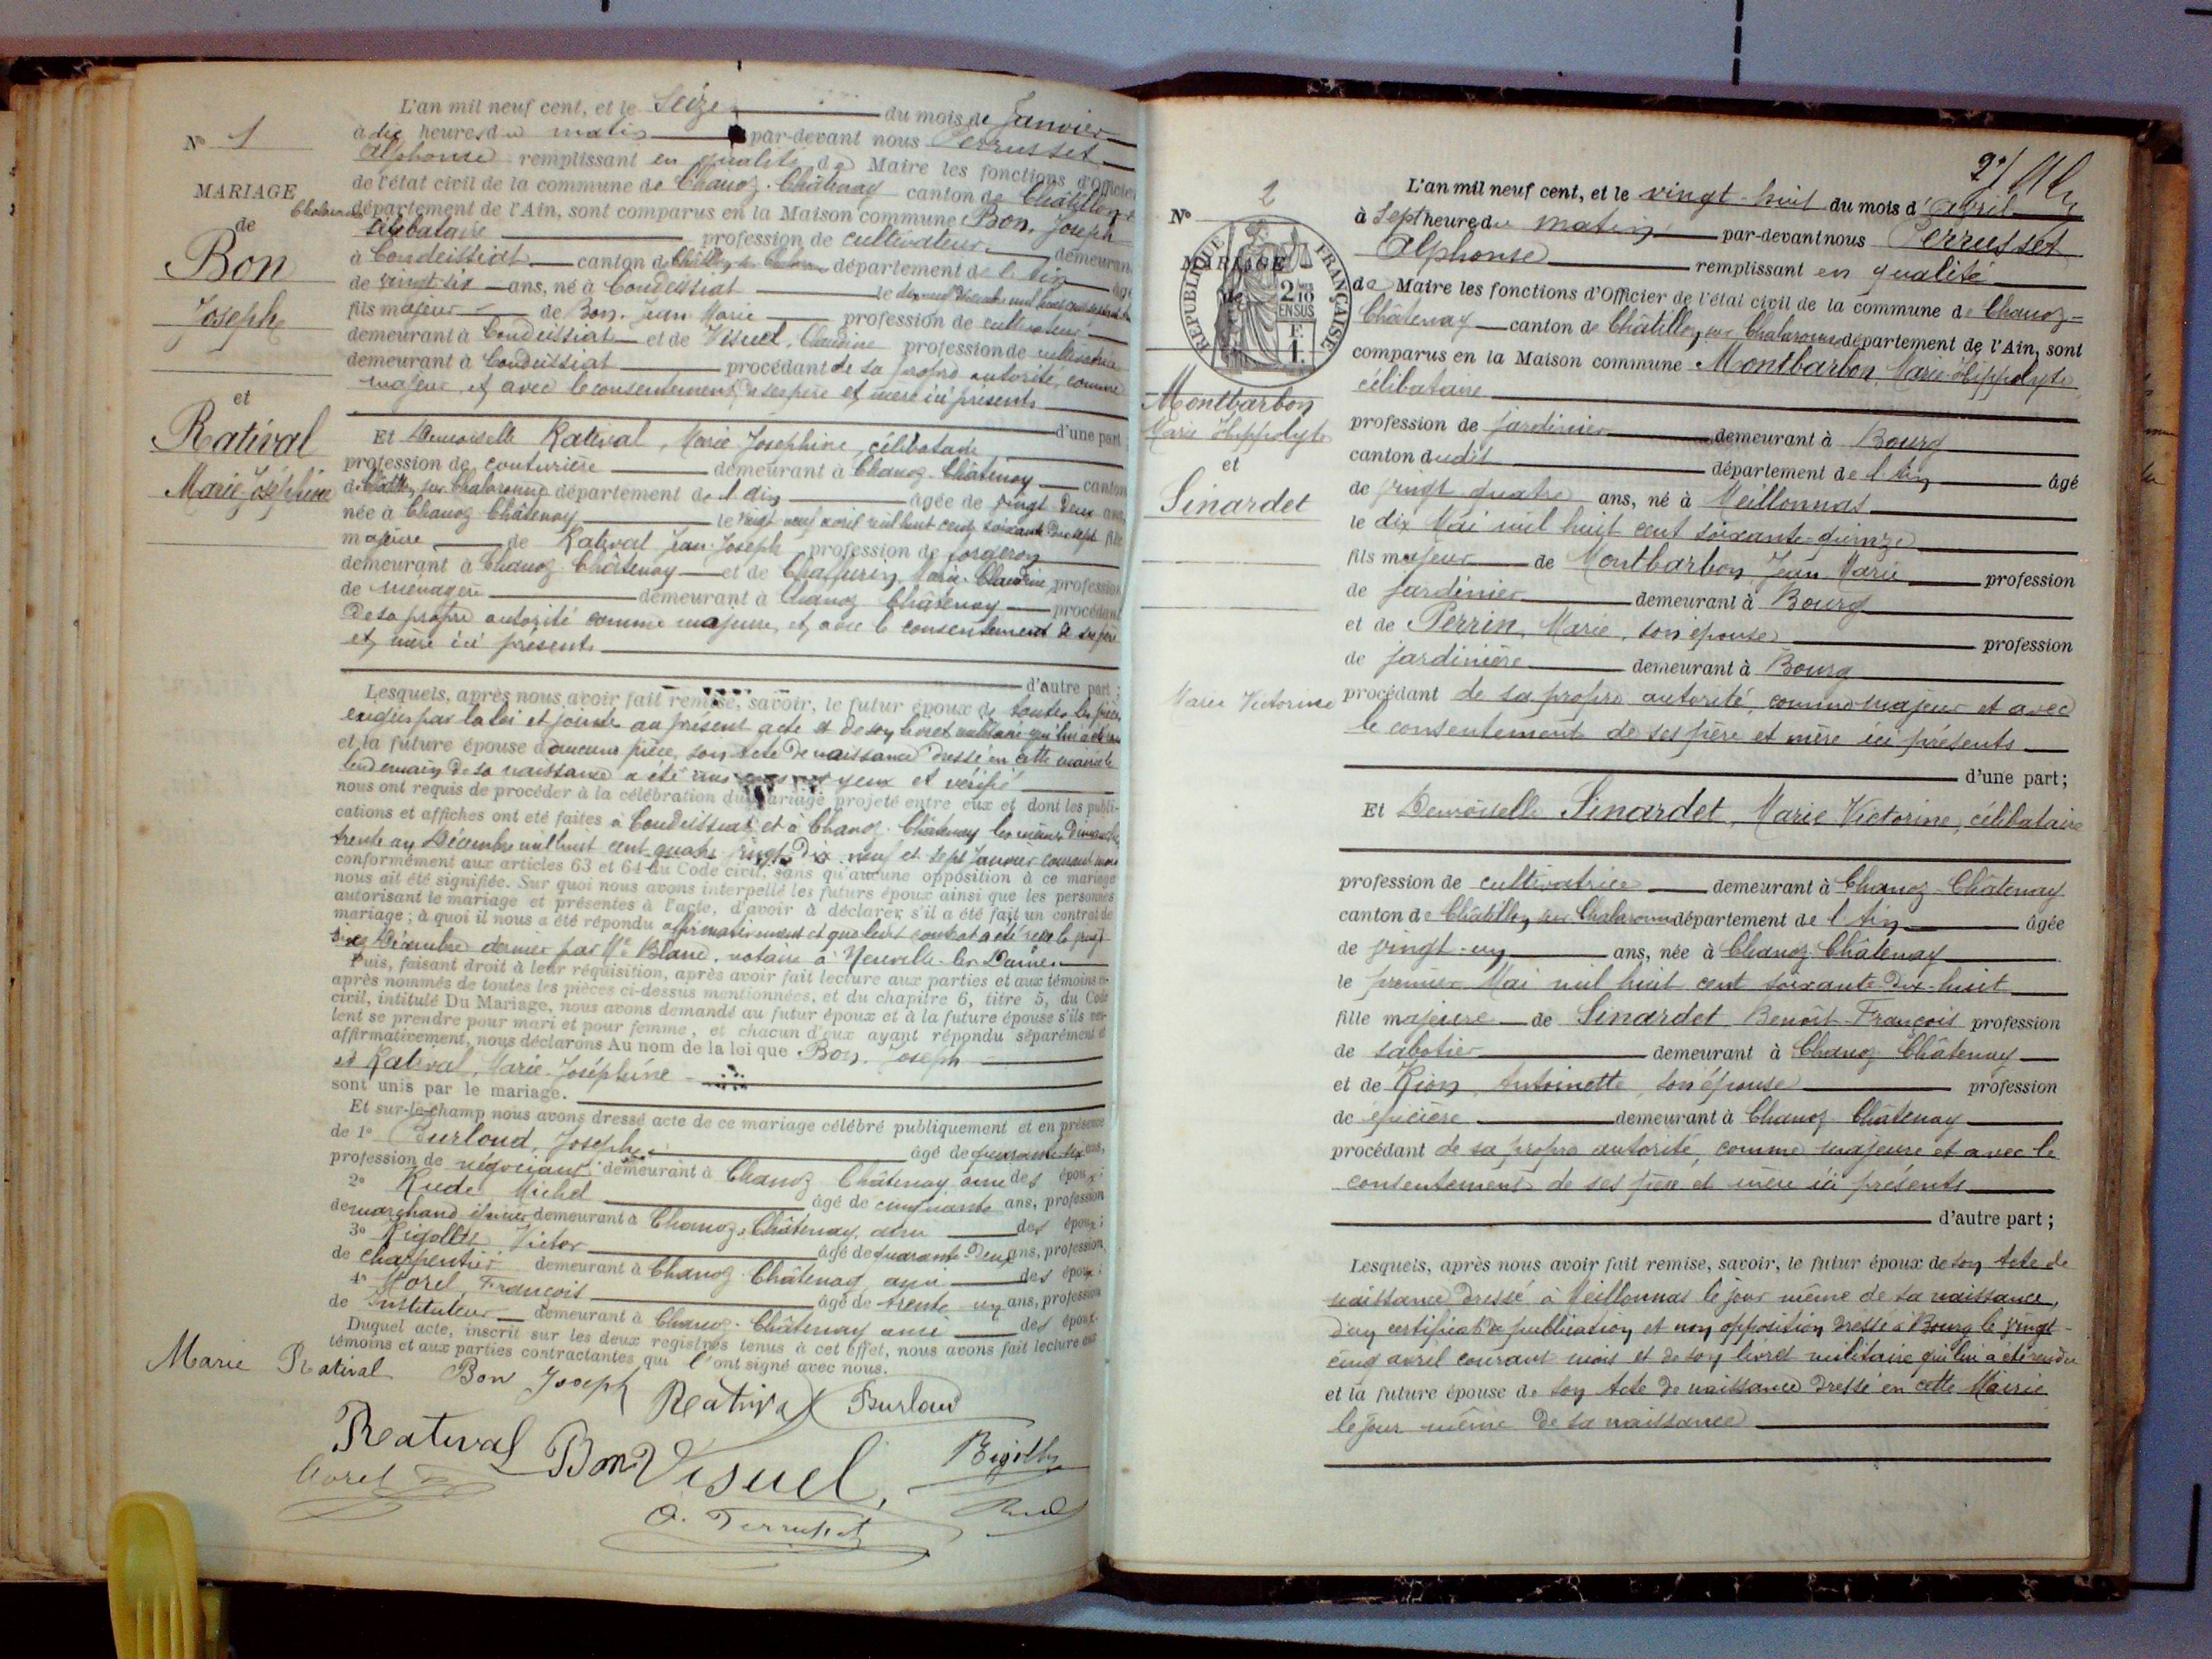 L'an mil neuf cent, et le Seize du mois de Janvier
N° 1
à dix heures du matin par-devant nous Perrusset
Alphonse remplissant en qualité de Maire les fonctions d'Officier
MARIAGE
de l'état civil de la commune de Chanoz-Châtenay canton de Châtillon s
Chalaronne département de l'Ain, sont comparus en la Maison commune Bon, Joseph
de
célibataire profession de cultivateur demeurant
Bon
à Condeissiat canton de Châtillon s. Chalaronne département de l'Ain âgé
de vingt-six ans, né à Condeissiat le
Joseph
fils majeur de Bon, Jean Marie profession de cultivateur
demeurant à Condeissiat et de Visuel, Claudine profession de cultivatrice
demeurant à Condeissiat procédant de sa propre autorité, comme
majeur et avec le consentement de ses père et mère ici présents
et
d'une part
Ratival
Et Demoiselle Ratival, Marie Joséphine, célibataire
profession de couturière demeurant à Chanoz-Châtenay canton
Marie-Joséphine
de Châtillon sur Chalaronne département de l'Ain âgée de vingt-deux ans,
née à Chanoz-Châtenay le vingt neuf avril mil huit cent soixante dix sept fille
majeure de Ratival Jean-Joseph profession de forgeron
demeurant à Chanoz-Châtenay et de Marie-Claudine, profession
de ménagère demeurant à Chanoz Châtenay procédant
de sa propre autorité comme majeure, et avec le consentement de ses père
et mère ici présents
d'autre part ;
Lesquels, après nous avoir fait remise, savoir, le futur époux de toutes les pièces
exigées par la loi et jointes au présent acte et de son livret militaire qui lui a été rendu
et la future épouse d'aucune pièce, son acte de naissance dressé en cette mairie le
lendemain de sa naissance a été mis sous nos yeux et vérifié
nous ont requis de procéder à la célébration du mariage projeté entre eux et dont les publi-
cations et affiches ont été faites à Condeissiat et à Chanoz-Châtenay les mêmes Dimanches
trente un Décembre mil huit cent quatre vingt-dix neuf et sept Janvier courant mois
conformément aux articles 63 et 64 du Code civil, sans qu'aucune opposition à ce mariage
nous ait été signifiée. Sur quoi nous avons interpellé les futurs époux ainsi que les personnes
autorisant le mariage et présentes à l'acte, d'avoir à déclarer s'il a été fait un contrat de
mariage ; à quoi il nous a été répondu affirmativement et que leur contrat a été reçu le vingt
Décembre dernier par Me Blanc, notaire à Neuville-les-Dames
Puis, faisant droit à leur réquisition, après avoir fait lecture aux parties et aux témoins ci-
après nommés de toutes les pièces ci-dessus mentionnées, et du chapitre 6, titre 5, du Code
civil, intitulé Du Mariage, nous avons demandé au futur époux et à la future épouse s'ils veu-
lent se prendre pour mari et pour femme, et chacun d'eux ayant répondu séparément et
affirmativement, nous déclarons Au nom de la loi que Bon, Joseph
et Ratival, Marie-Joséphine
sont unis par le mariage.
Et sur-le-champ nous avons dressé acte de ce mariage célébré publiquement et en présence
de 1° Burloud, Joseph âgé de quarante-six ans,
profession de négociant demeurant à Chanoz Châtenay ami des époux ;
2° Rude Michel âgé de cinquante ans, profession
de marchand demeurant à Chanoz-Châtenay, ami des époux ;
3° Rigollet Victor âgé de quarante-deux ans, profession
de charpentier demeurant à Chanoz-Châtenay ami des époux ;
4° Morel, François âgé de trente-un ans, profession
de Instituteur demeurant à Chanoz-Châtenay ami des époux.
Duquel acte, inscrit sur les deux registres tenus à cet effet, nous avons fait lecture aux
témoins et aux parties contractantes qui l'ont signé avec nous.
Marie Ratival Bon Joseph Ratival Burloud
Ratival Bon Visuel Rigollet
Morel A. Perrusset Rude
L'an mil neuf cent, et le vingt-huit du mois d'avril
N° 2
à Sept heures du matin par-devant nous Perrusset
REPUBLIQUE FRANÇAISE
MARIAGE
de
2/10 EN SUS
F. 1.
Alphonse remplissant en qualité
de Maire les fonctions d'Officier de l'état civil de la commune de Chanoz-
Châtenay canton de Châtillon sur Chalaronne département de l'Ain, sont
comparus en la Maison commune Montbarbon, Marie-Hippolyte
célibataire
Montbarbon
Marie Hippolyte
profession de jardinier demeurant à Bourg
et
canton dudit département de l'Ain âgé
Sinardet
de vingt quatre ans, né à Meillonnas
le dix Mai mil huit cent soixante-quinze
fils majeur de Montbarbon, Jean-Marie profession
de jardinier demeurant à Bourg
et de Perrin, Marie, son épouse profession
de jardinière demeurant à Bourg
Marie Victorine
procédant de sa propre autorité, comme majeur et avec
le consentement de ses père et mère ici présents
d'une part ;
Et Demoiselle Sinardet, Marie Victorine, célibataire
profession de cultivatrice demeurant à Chanoz-Châtenay
canton de Châtillon sur Chalaronne département de l'Ain âgée
de vingt-un ans, née à Chanoz-Châtenay
le premier Mai mil huit cent soixante-dix-huit
fille majeure de Sinardet Benoit-François profession
de sabotier demeurant à Chanoz Châtenay
et de Rion, Antoinette, son épouse profession
de épicière demeurant à Chanoz-Châtenay
procédant de sa propre autorité, comme majeure et avec le
consentement de ses père et mère ici présents
d'autre part ;
Lesquels, après nous avoir fait remise, savoir, le futur époux de son Acte de
naissance dressé à Meillonnas le jour même de sa naissance,
d'un certificat de publication et non opposition dressé à Bourg le vingt-
cinq avril courant mois et de son livret militaire qui lui a été rendu
et la future épouse de son Acte de naissance dressé en cette Mairie
le jour même de sa naissance